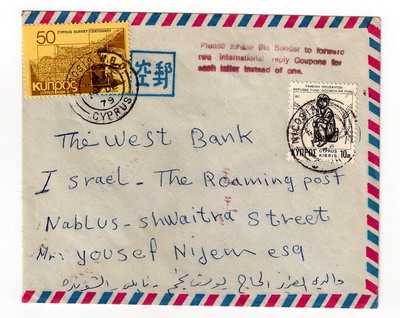 50
CYPRUS SURVEY CENTENARY
ΚΥΠΡΟΣ
NICOSIA
79
CYPRUS
空郵
Please advise the Sender to forward
two international reply Coupons for
each letter instead of one.
REFUGEE FUND
ΚΥΠΡΟΣ CYPRUS KIBRIS 10m
NICOSIA
The West Bank
Israel - The Roaming post
Nablus - shwaitra street
Mr: yousef Nijem esq
الحاج يوسف نجم - نابلس - الشويترة